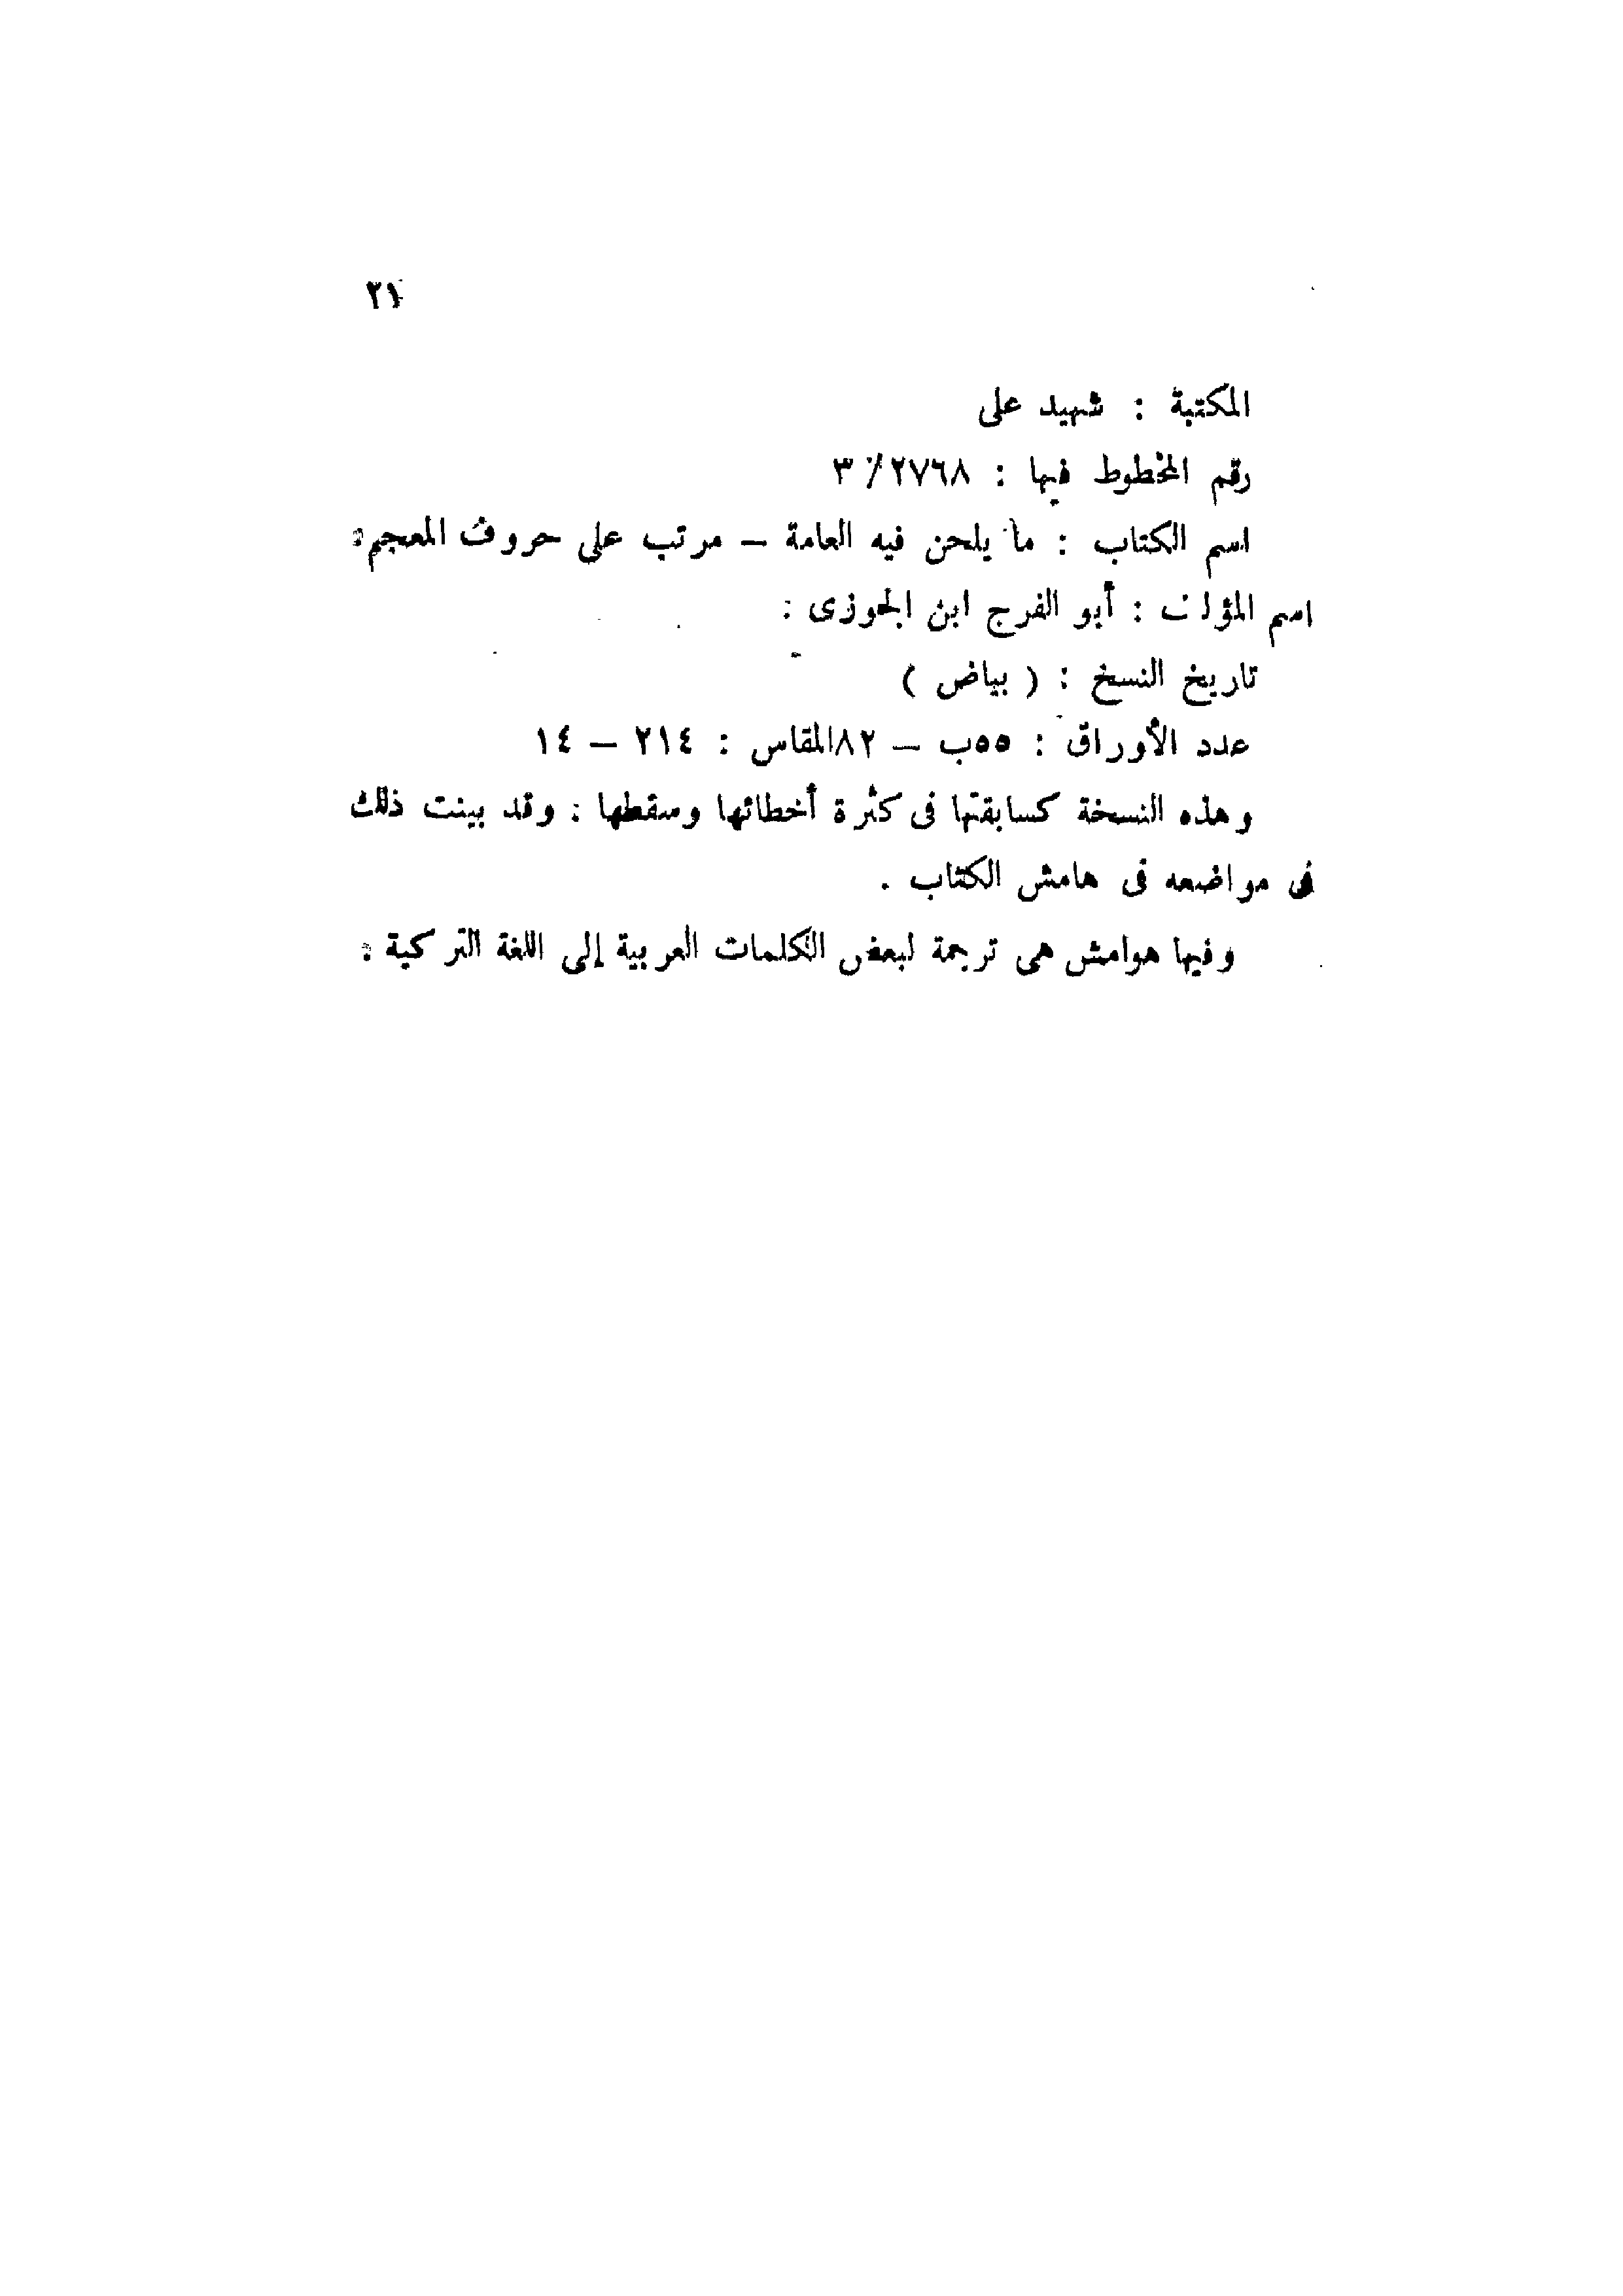 ٢١
المكتبة : شهيد على
رقم المخطوط فيها : ٢٧٦٨ / ٣
اسم الكتاب : ما يلحن فيه العامة – مرتب على حروف المعجم :
اسم المؤلف : أبو الفرج ابن الجوزى :
تاريخ النسخ : ( بياض )
عدد الأوراق : ٥٥ب – ٨٢المقاس : ٢١٤ – ١٤
وهذه النسخة كسابقتها فى كثرة أخطائها وسقطها : وقد بينت ذلك
فى مواضعه فى هامش الكتاب .
وفيها هوامش هى ترجمة لبعض الكلمات العربية إلى اللغة التركية :